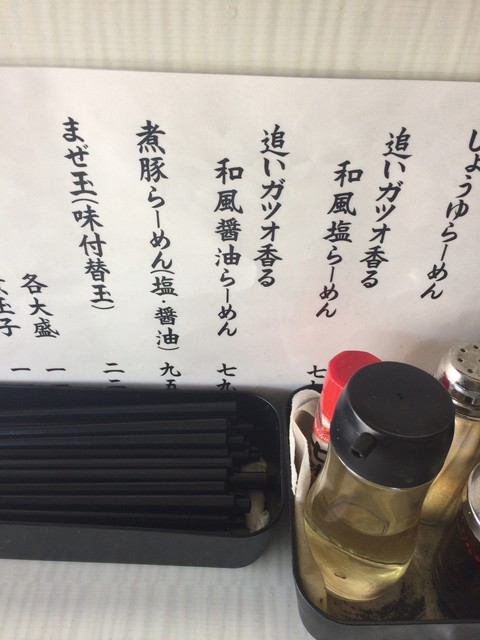 しょうゆらーめん
追いガツオ香る
和風塩らーめん
七九
追いガツオ香る
和風醤油らーめん
七九
煮豚らーめん(塩・醤油)
九五
まぜ玉(味付替玉)
二二
各大盛
一一
玉子
一